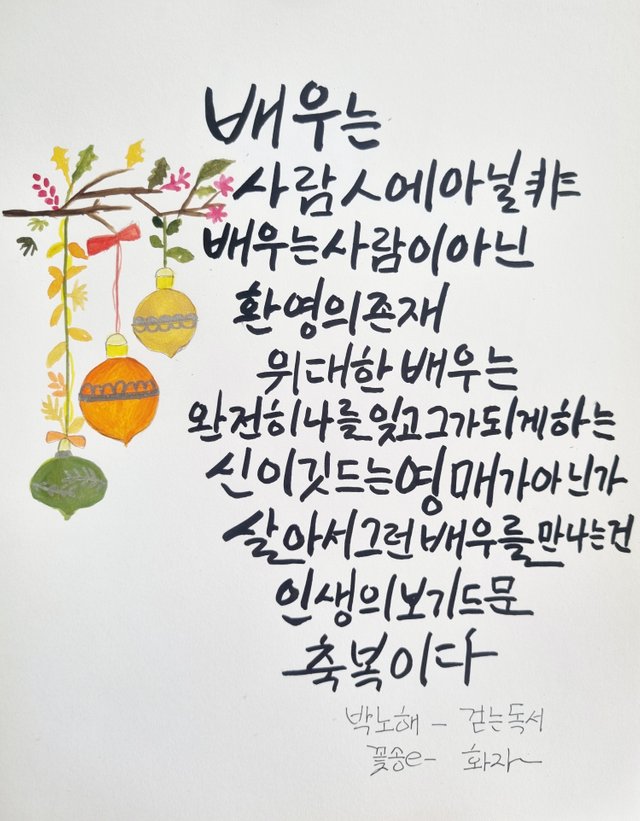 배우는
사람人에아닐非
배우는사람이아닌
환영의존재
위대한배우는
완전히나를잊고그가되게하는
신이깃드는영매가아닌가
살아서그런배우를만나는건
인생의보기드문
축복이다
박노해 - 걷는독서
꽃송e- 화자~